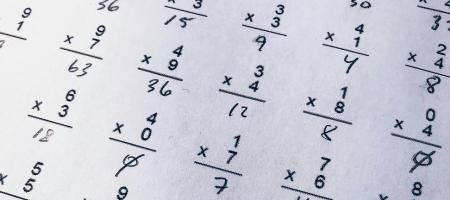 9 3 3
1 36 x 3 x 3 30
15 9 x 4 3
x 9 x 4 x 4 2
7 9 1 x 4
63 36 x 3 4 8
x 6 x 4 12 x 1 0
3 0 x 1 8 x 4
18 0 7 8 0
5 7 x 7
x 5 9 x 6 8